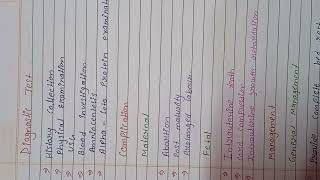 Diagnostic Test
⇒ History Collection
⇒ Physical Examination
⇒ USG
⇒ Blood Investigation
⇒ Amniocentesis
⇒ Alpha - feto Protein examinat
Complication
Maternal
⇒ Abortion
⇒ Post maturity
⇒ Prolonged labour
Fetal
⇒ Intrauterine death
⇒ Cord Compression
⇒ Intrauterine growth
Management
General Management
Provide complete bed rest